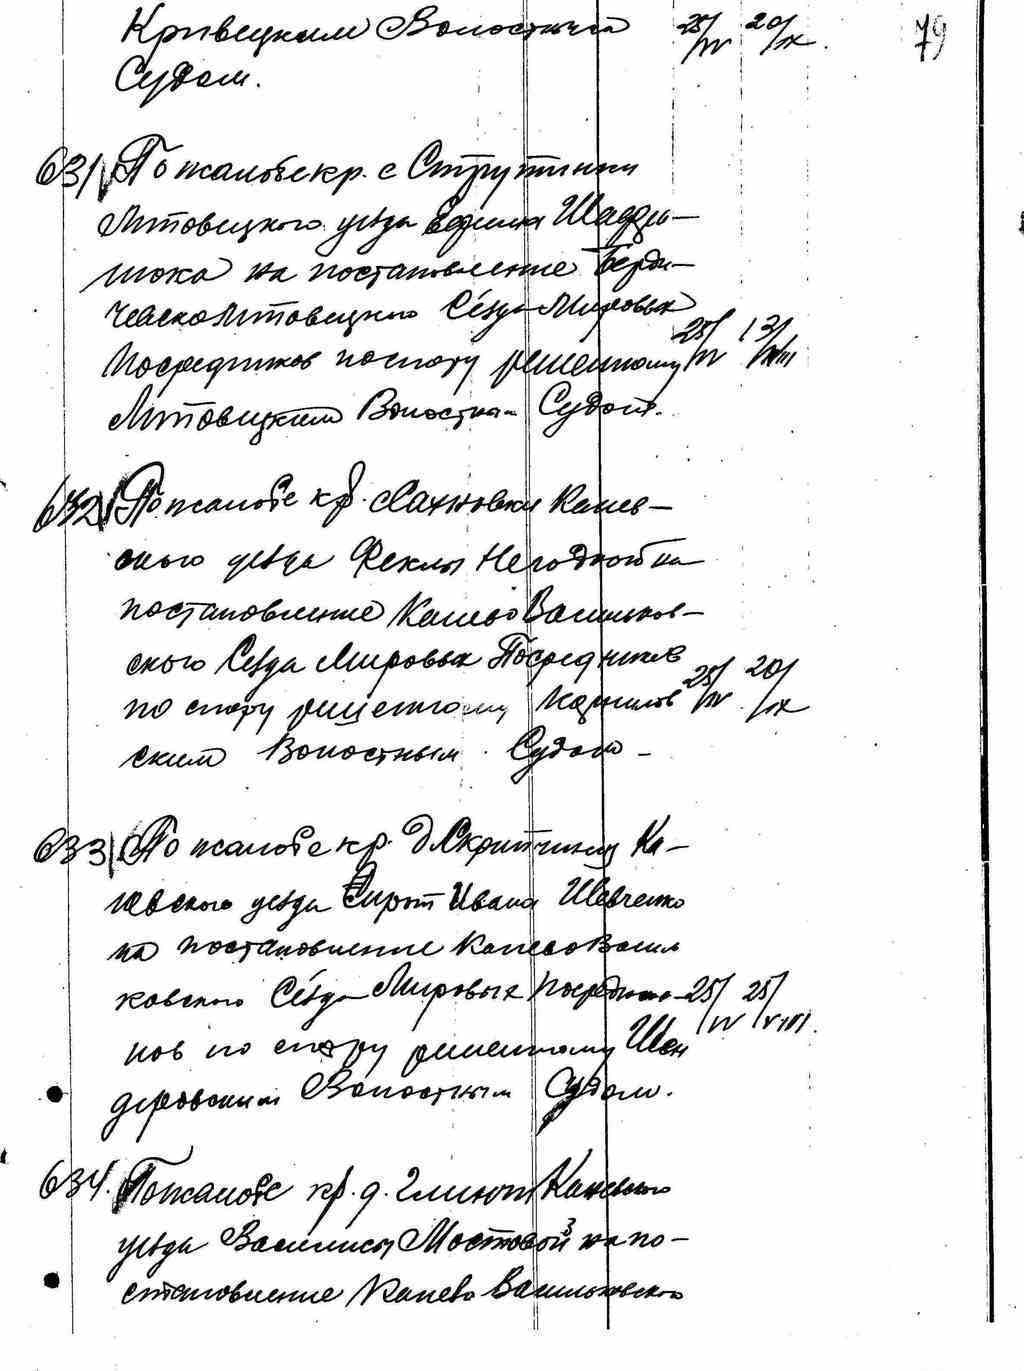 Кривецким Волостным 25/IV 20/IX. 79
Судом.
631 По жалобе кр. с Струтинки
Липовецкого уезда Ефима Шавдлы-
шока на постановление Берди-
чевсколиповецкого Съезда Мировых
Посредников по спору решенному 25/IV 13/VIII
Липовецким Волостным Судом.
632 По жалобе кр. с Сахновки Канев-
ского уезда Феклы Негодной на
постановление Канево Васильков-
ского Съезда Мировых Посредников
по спору решенному 25/IV 20/IX
ским Волостным Судом-
633 По жалобе кр. д. Скрипчинцы Ка-
невского уезда Сирот Ивана Шевченко
на постановление Канево Василь
ковского Съезда Мировых Посредни- 25/IV 25/VIII.
ков по спору решенному Шен
деровским Волостным Судом.
634. По жалобе кр. д. Глинч Каневского
уезда Василисы Мостовой на по-
становление Канево Васильковского